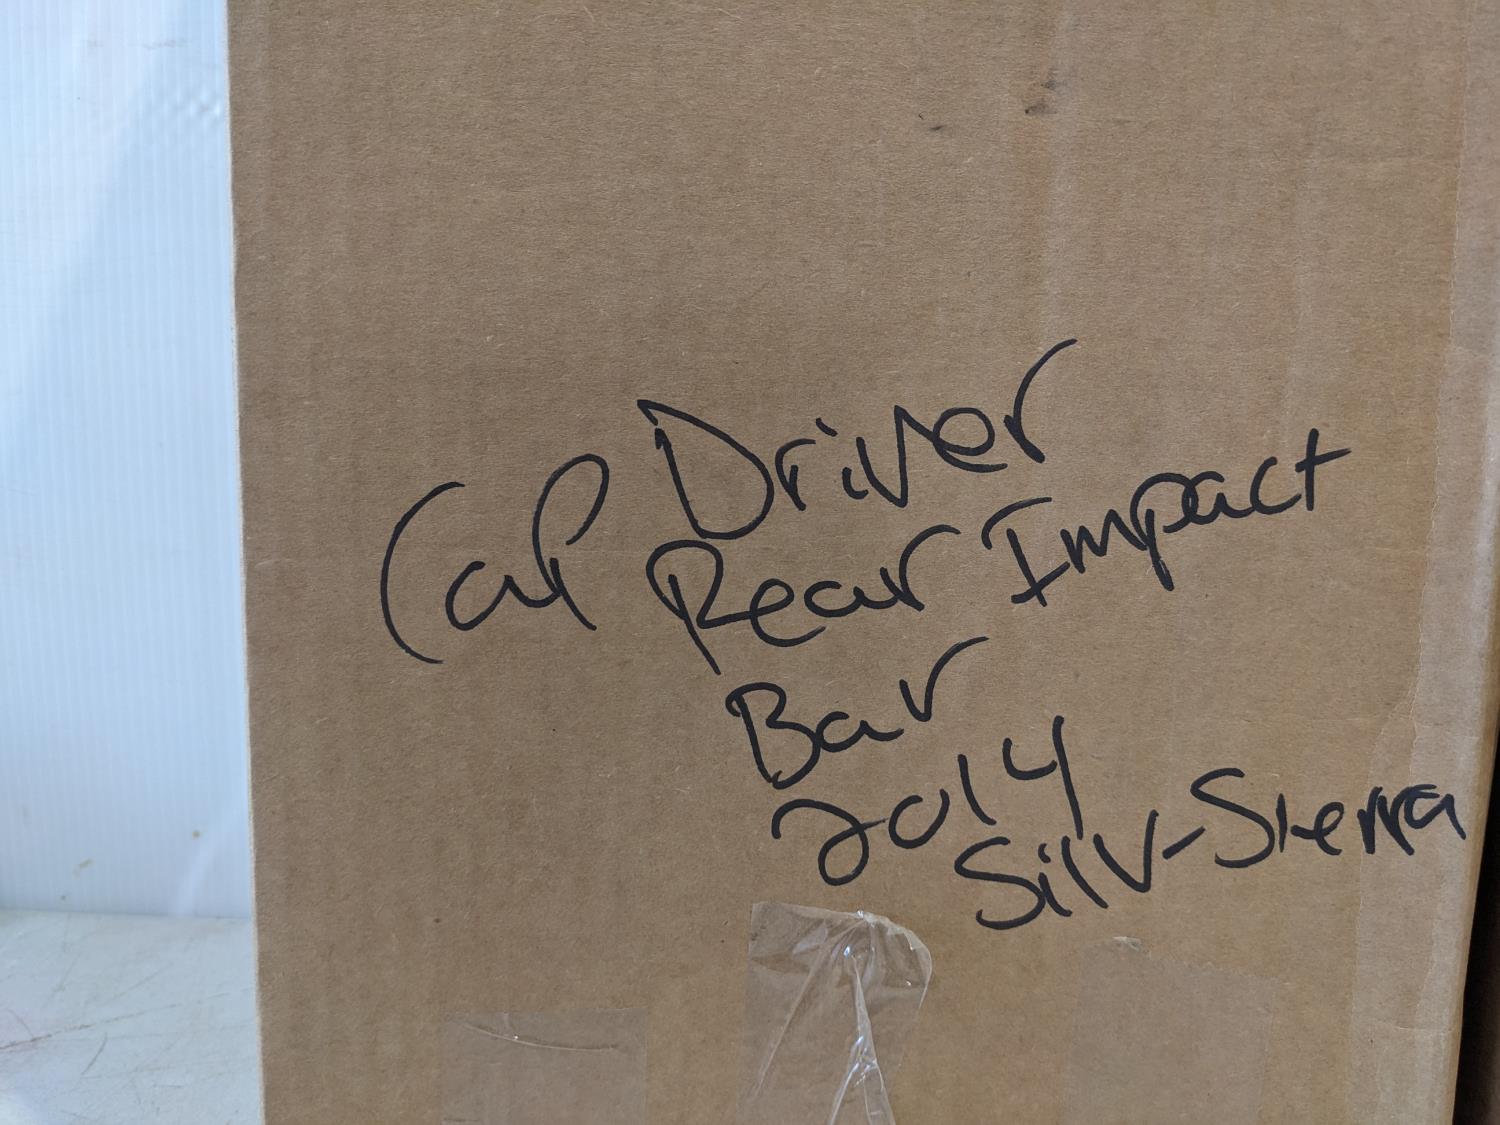 Cap Driver
Rear Impact
Bar
2014
Silv-Sierra